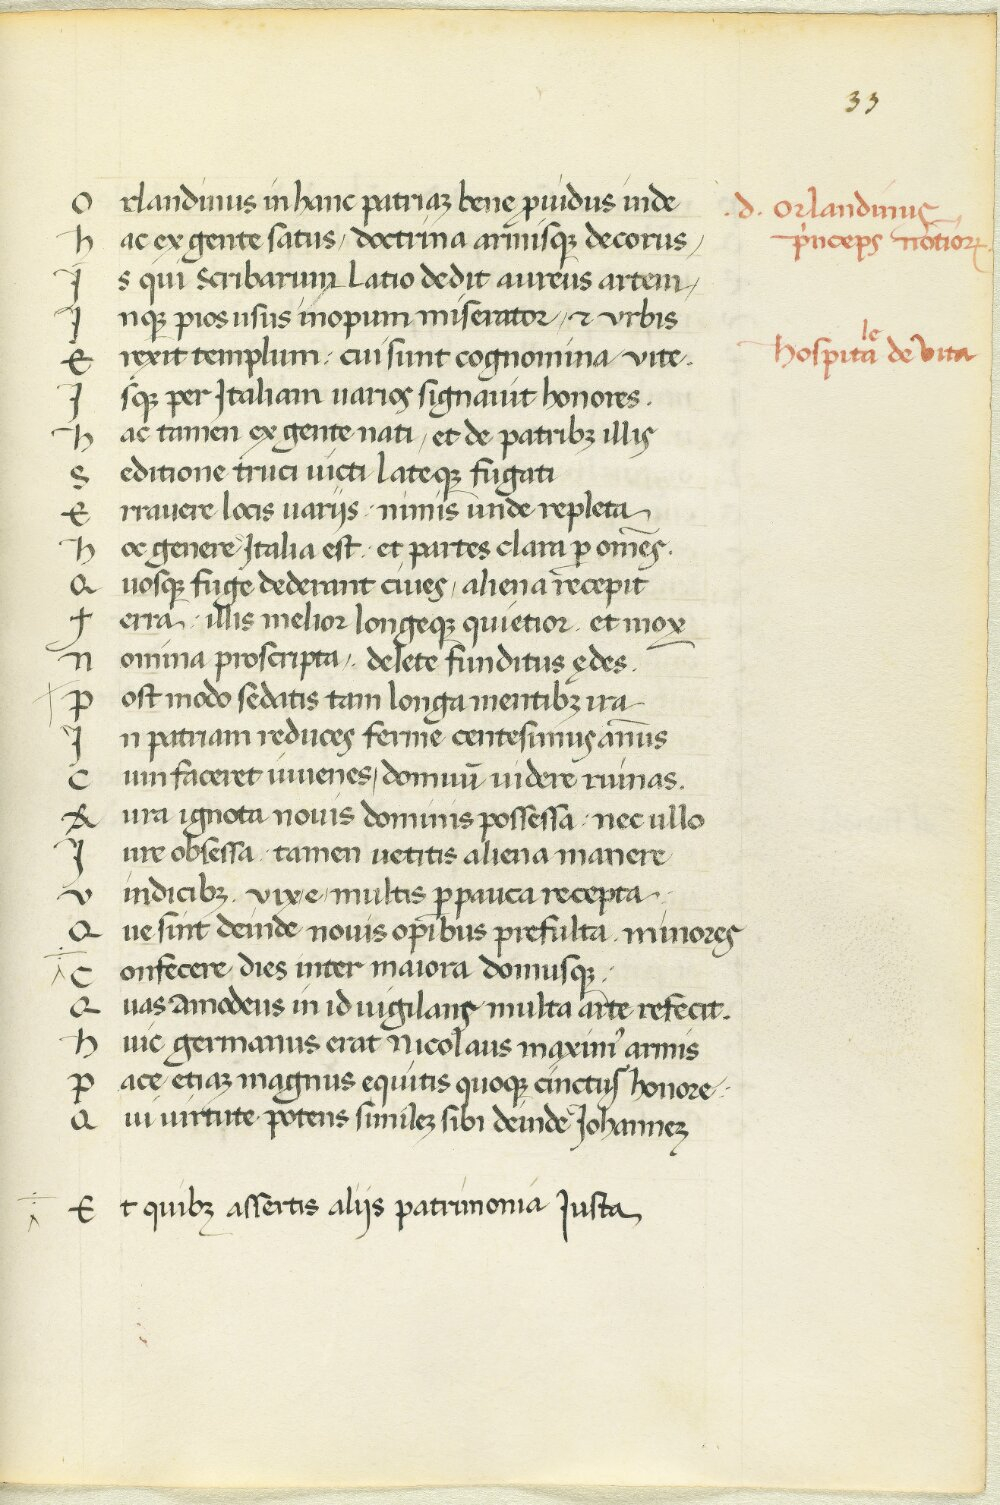 33
O rlandinus in hanc patriaz bene ꝓuidus inde
.d. Orlandinus
h ac ex gente satus, doctrina armisqꝫ decorus,
princeps notioꝝ
I s qui Scribarum Latio dedit aureus artem,
I nqꝫ pios usus inopum miserator, ⁊ vrbis
E rexit templum. cui sunt cognomina vite.
hospitale de vita
I sqꝫ per Italiam varios signauit honores.
h ac tamen ex gente nati, et de patribꝫ illis
S editione truci uicti Lateqꝫ fugati
E rrauere locis uariis. nimis unde repleta
h oc genere Italia est. et partes clara ꝑ om̃es.
Q uosqꝫ fuge dederant ciues, aliena recepit
T erra. illis melior longeqꝫ quietior. et mox
N omina proscripta,. delete funditus ędes.
P ost modo sedatis tam longa mentibꝫ ira
I n patriam reduces ferme centesimus annus
C um faceret iuuenes, domuũ uidere ruinas.
A ura ignota nouis dominis possessa. nec ullo
I ure obsessa. tamen uetitis aliena manere
V indicibꝫ. vix e multis ꝑpauca recepta.
Q ue sint deinde nouis opibus prefulta. minores
C onfecere dies inter maiora domusqꝫ.
Q uas Amodeus in id uigilans multa arte refecit.
h uic germanus erat Nicolaus maximꝰ armis
P ace etiaz magnus equitis quoqꝫ cinctus honore.
Q ui uirtute potens similez sibi deinde Iohannez
E t quibꝫ assertis aliis patrimonia Iusta